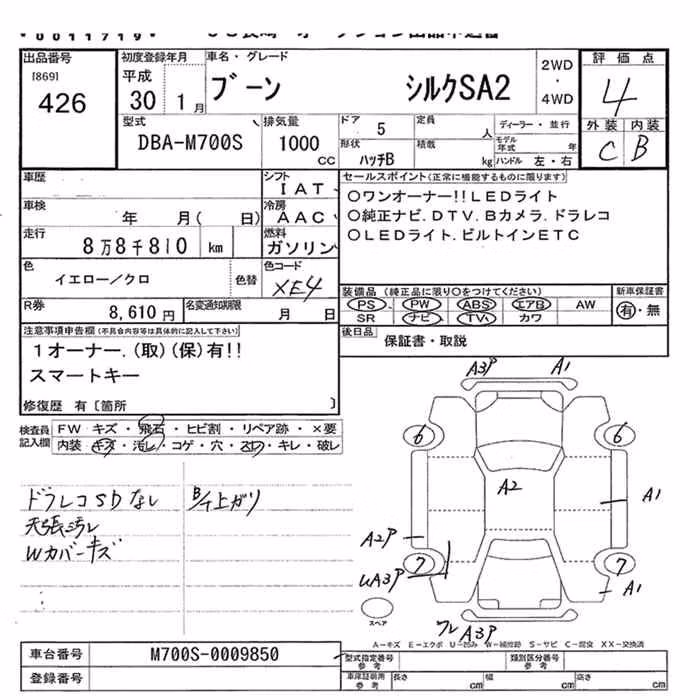 出品番号
[869]
426
初度登録年月
平成
30 1月
車名・グレード
ブーン シルクSA2
2WD
・
4WD
評価点
4
外装 内装
C B
型式
DBA-M700S
排気量
1000
cc
ドア 5
定員 人
ディーラー・並行
モデル年式 年
形状
ハッチB
積載 kg
ハンドル 左・右
車歴
シフト
IAT
車検
年 月( 日)
冷房
AAC
走行
8万8千810 km
燃料
ガソリン
色
イエロー/クロ
色替
色コード
XE4
R券
8,610円
名変通知期限
月 日
セールスポイント(正常に機能するものに限ります)
○ワンオーナー!!LEDライト
○純正ナビ.DTV.Bカメラ.ドラレコ
○LEDライト.ビルトインETC
装備品(純正品に限り○をつけてください)
PS PW ABS エアB AW
SR ナビ TV カワ
新車保証書
有・無
後日品
保証書・取説
注意事項申告欄(不具合内容等は具体的に記入して下さい)
1オーナー.(取)(保)有!!
スマートキー
修復歴 有〔箇所 〕
検査員記入欄
FW キズ・飛石・ヒビ割・リペア跡・×要
内装 キズ・汚レ・コゲ・穴・スレ・キレ・破レ
ドラレコSDなし
天張汚レ
Wカバーキズ
A3P A1
6 6
A2
A1
A2P
7 7
A3P
A1
A3P
スペア
A-キズ E-エクボ U-凹み W-補修跡 S-サビ C-腐食 XX-交換済
車台番号
M700S-0009850
登録番号
型式指定番号
参考
類別区分番号
参考
車庫証明用
参考
長さ cm
幅 cm
高さ cm